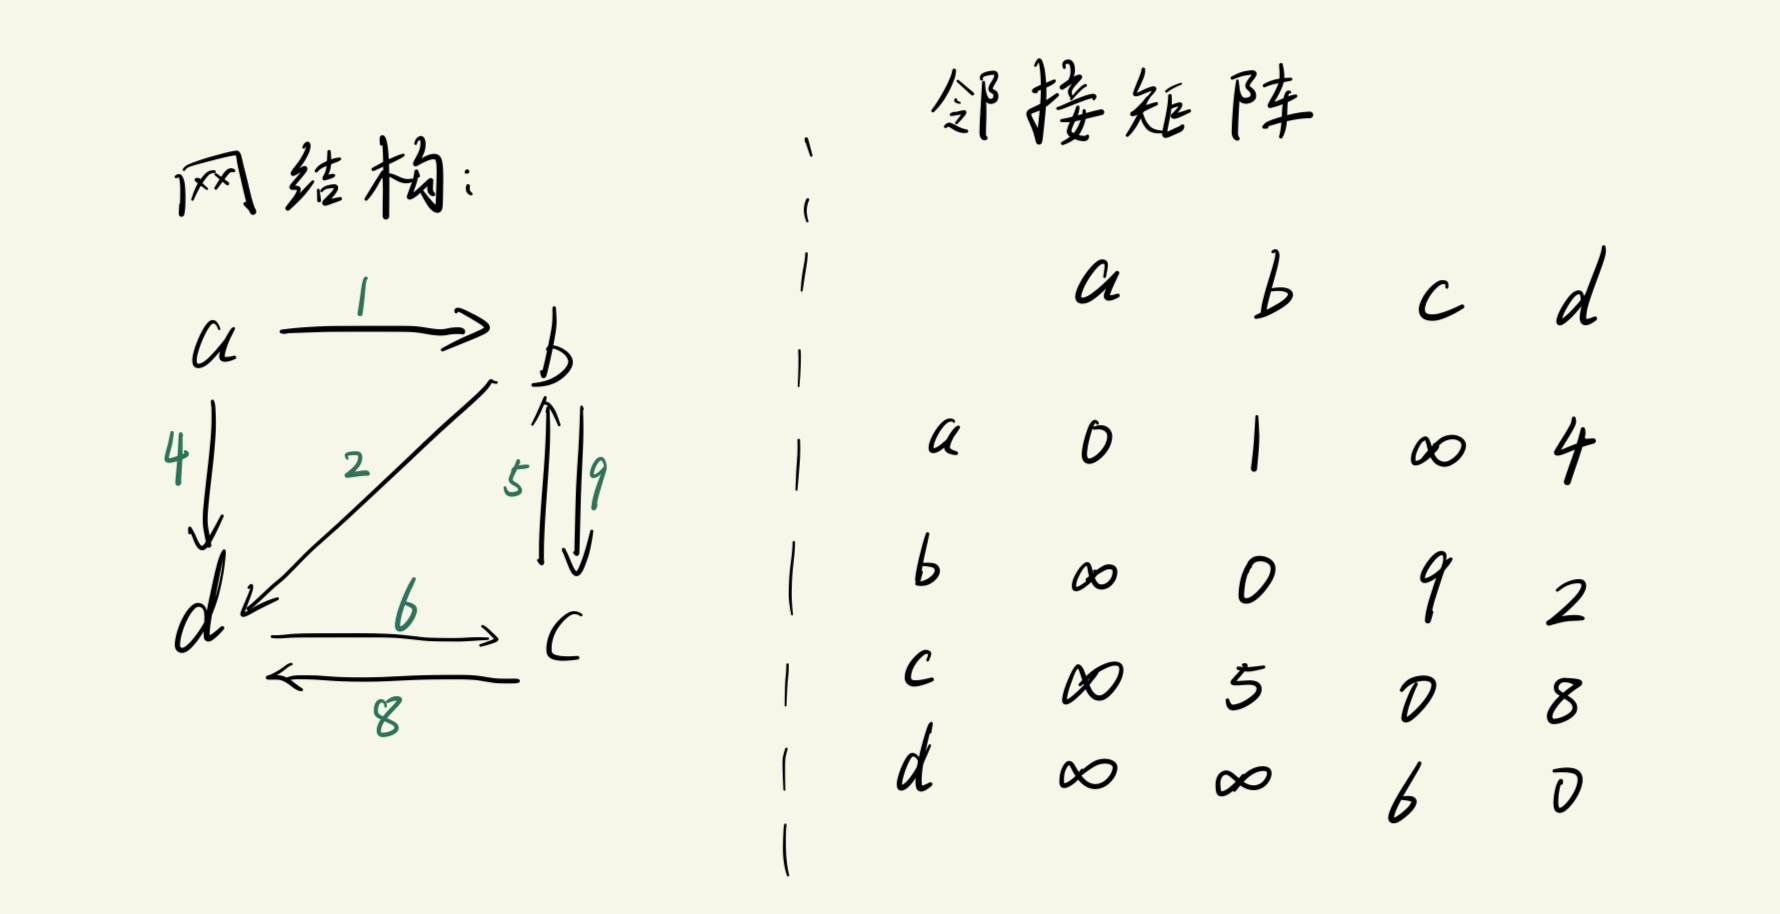 网结构:
a 1 b
4 2 5 9
d 6 c
8
邻接矩阵
a b c d
a 0 1 ∞ 4
b ∞ 0 9 2
c ∞ 5 0 8
d ∞ ∞ 6 0